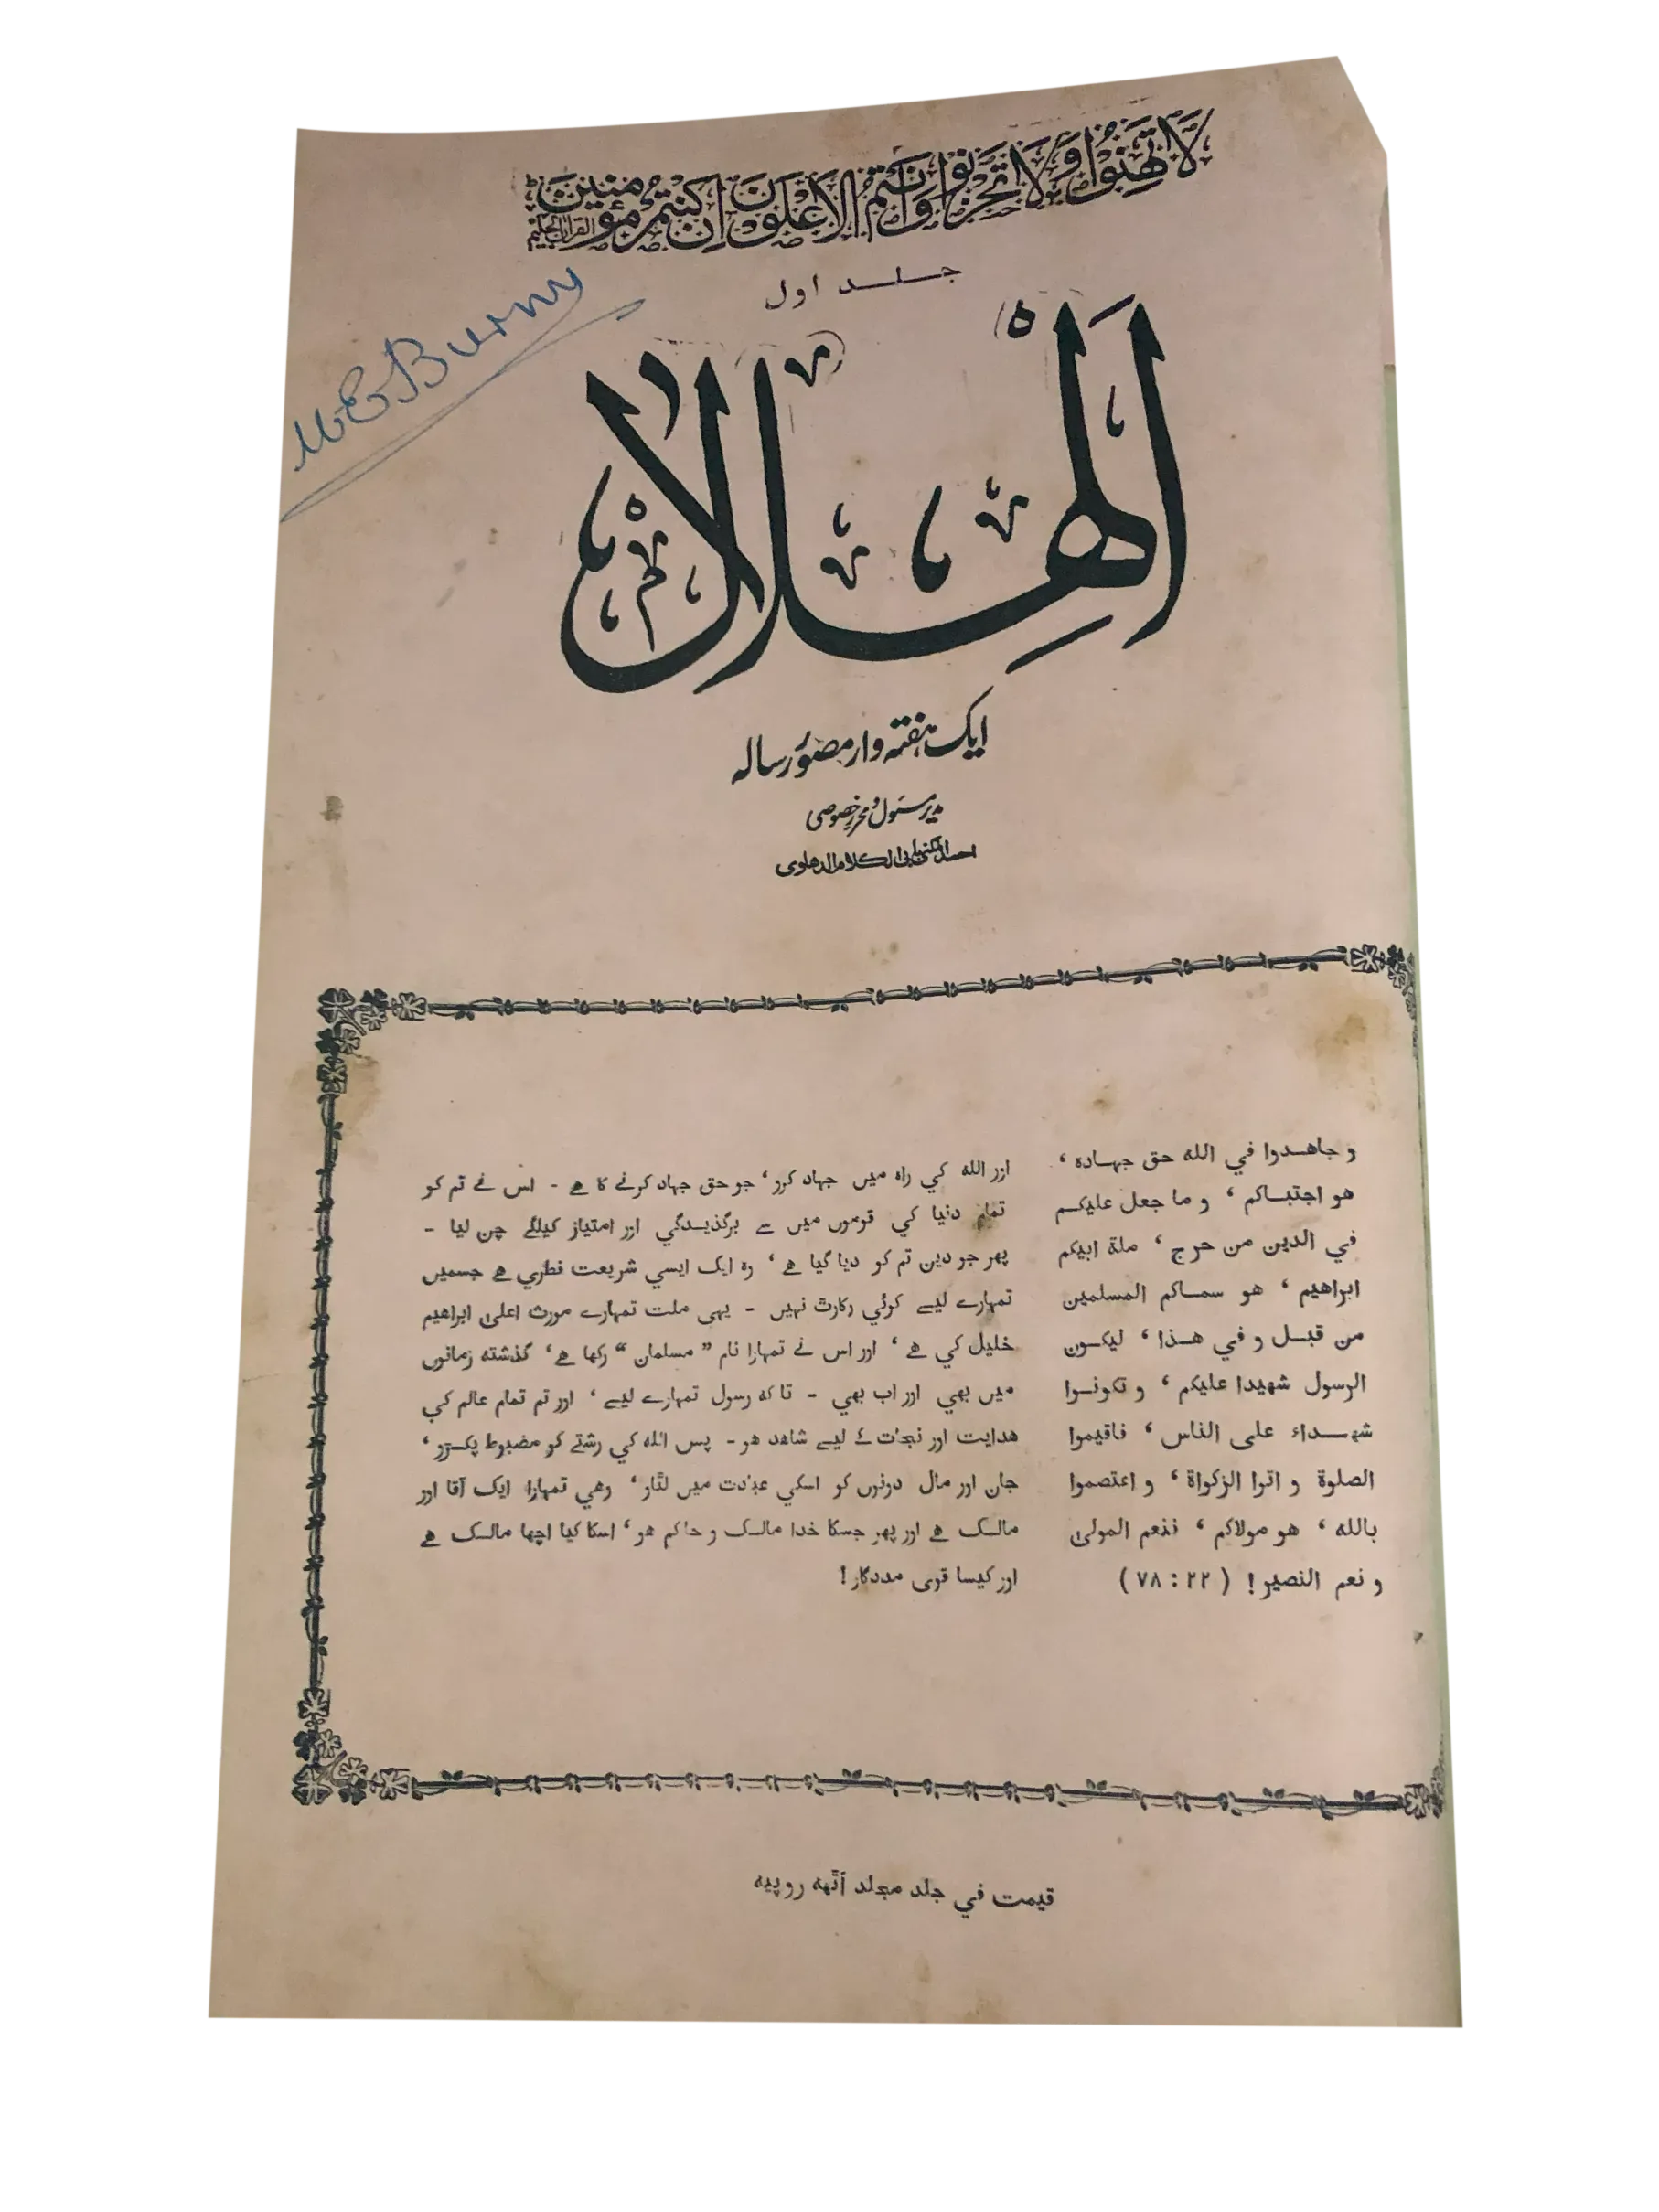 لَا تَهِنُوا وَلَا تَحْزَنُوا وَأَنْتُمُ الْأَعْلَوْنَ إِنْ كُنْتُمْ مُؤْمِنِينَ
القرآن الحکیم
جلد اول
M E Burny
الهلال
ایک ہفتہ وار مصور رسالہ
مدیر مسئول و محرر خصوصی
احمد المکنی بابی الکلام الدھلوی
و جاهدوا في الله حق جهاده ‘
هو اجتباكم ‘ و ما جعل عليكم
في الدين من حرج ‘ ملة ابيكم
ابراهيم ‘ هو سماكم المسلمين
من قبل و في هذا ‘ ليكون
الرسول شهيدا عليكم ‘ و تكونوا
شهداء على الناس ‘ فاقيموا
الصلوة و اتوا الزكواة ‘ و اعتصموا
بالله ‘ هو مولاكم ‘ فنعم المولى
و نعم النصير ! ( ٢٢ : ٧٨ )
اور الله کي راہ میں جہاد کرو ‘ جو حق جہاد کرنے کا ہے - اس نے تم کو
تمام دنیا کي قوموں میں سے برگذیدگي اور امتیاز کیلئے چن لیا -
پھر جو دین تم کو دیا گیا ہے ‘ وہ ایک ایسي شریعت فطري ہے جسمیں
تمہارے لیے کوئي رکاوٹ نہیں - یہی ملت تمہارے مورث اعلی ابراهیم
خلیل کي ہے ‘ اور اس نے تمہارا نام ” مسلمان “ رکھا ہے ‘ گذشتہ زمانوں
میں بھي اور اب بھي - تاکہ رسول تمہارے لیے ‘ اور تم تمام عالم کي
هدایت اور نجات کے لیے شاهد هو - پس اللہ کي رشتے کو مضبوط پکڑو ‘
جان اور مال دونوں کو اسکي عبادت میں لٹاؤ ‘ وهي تمہارا ایک آقا اور
مالک ہے اور پھر جسکا خدا مالک و حاکم هو ‘ اسکا کیا اچھا مالک ہے
اور کیسا قوی مددگار !
قیمت في جلد مجلد آٹھہ روپیہ